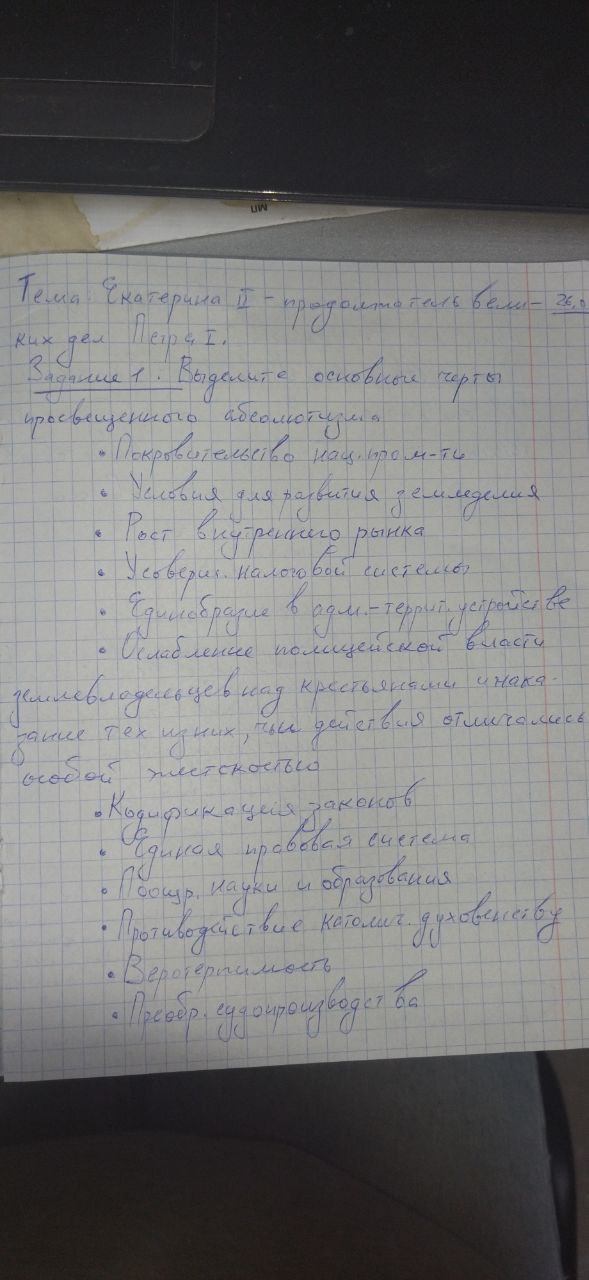 Тема: Екатерина II – продолжатель вели-
ких дел Петра I.
Задание 1. Выделите основные черты
просвещенного абсолютизма
• Покровительство нац. пром-ти
• Условия для развития земледелия
• Рост внутреннего рынка
• Усоверш. налоговой системы
• Единобразие в адм.-террит. устройстве
• Ослабление полицейской власти
землевладельцев над крестьянами и нака-
зание тех из них, чьи действия отличались
особой жестокостью
• Кодификация законов
• Единая правовая система
• Поощр. науки и образования
• Противодействие католич. духовенству
• Веротерпимость
• Преобр. судопроизводства